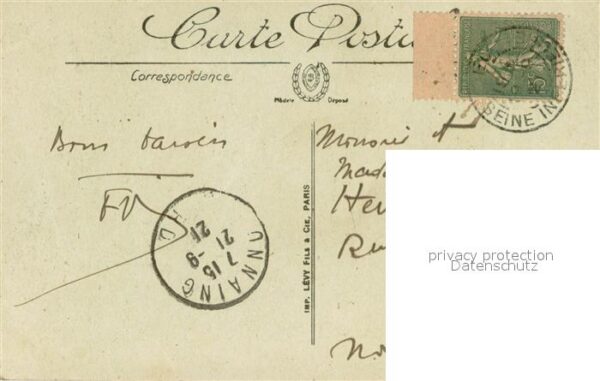 Carte Posta
Correspondance
Modèle Déposé
SEINE IN
Bons baisers
FV
ONNAING
7 15
21 -9
21
IMP. LÉVY FILS & CIE, PARIS
Monsieur et
Mada
Hen
Ru
No
privacy protection
Datenschutz